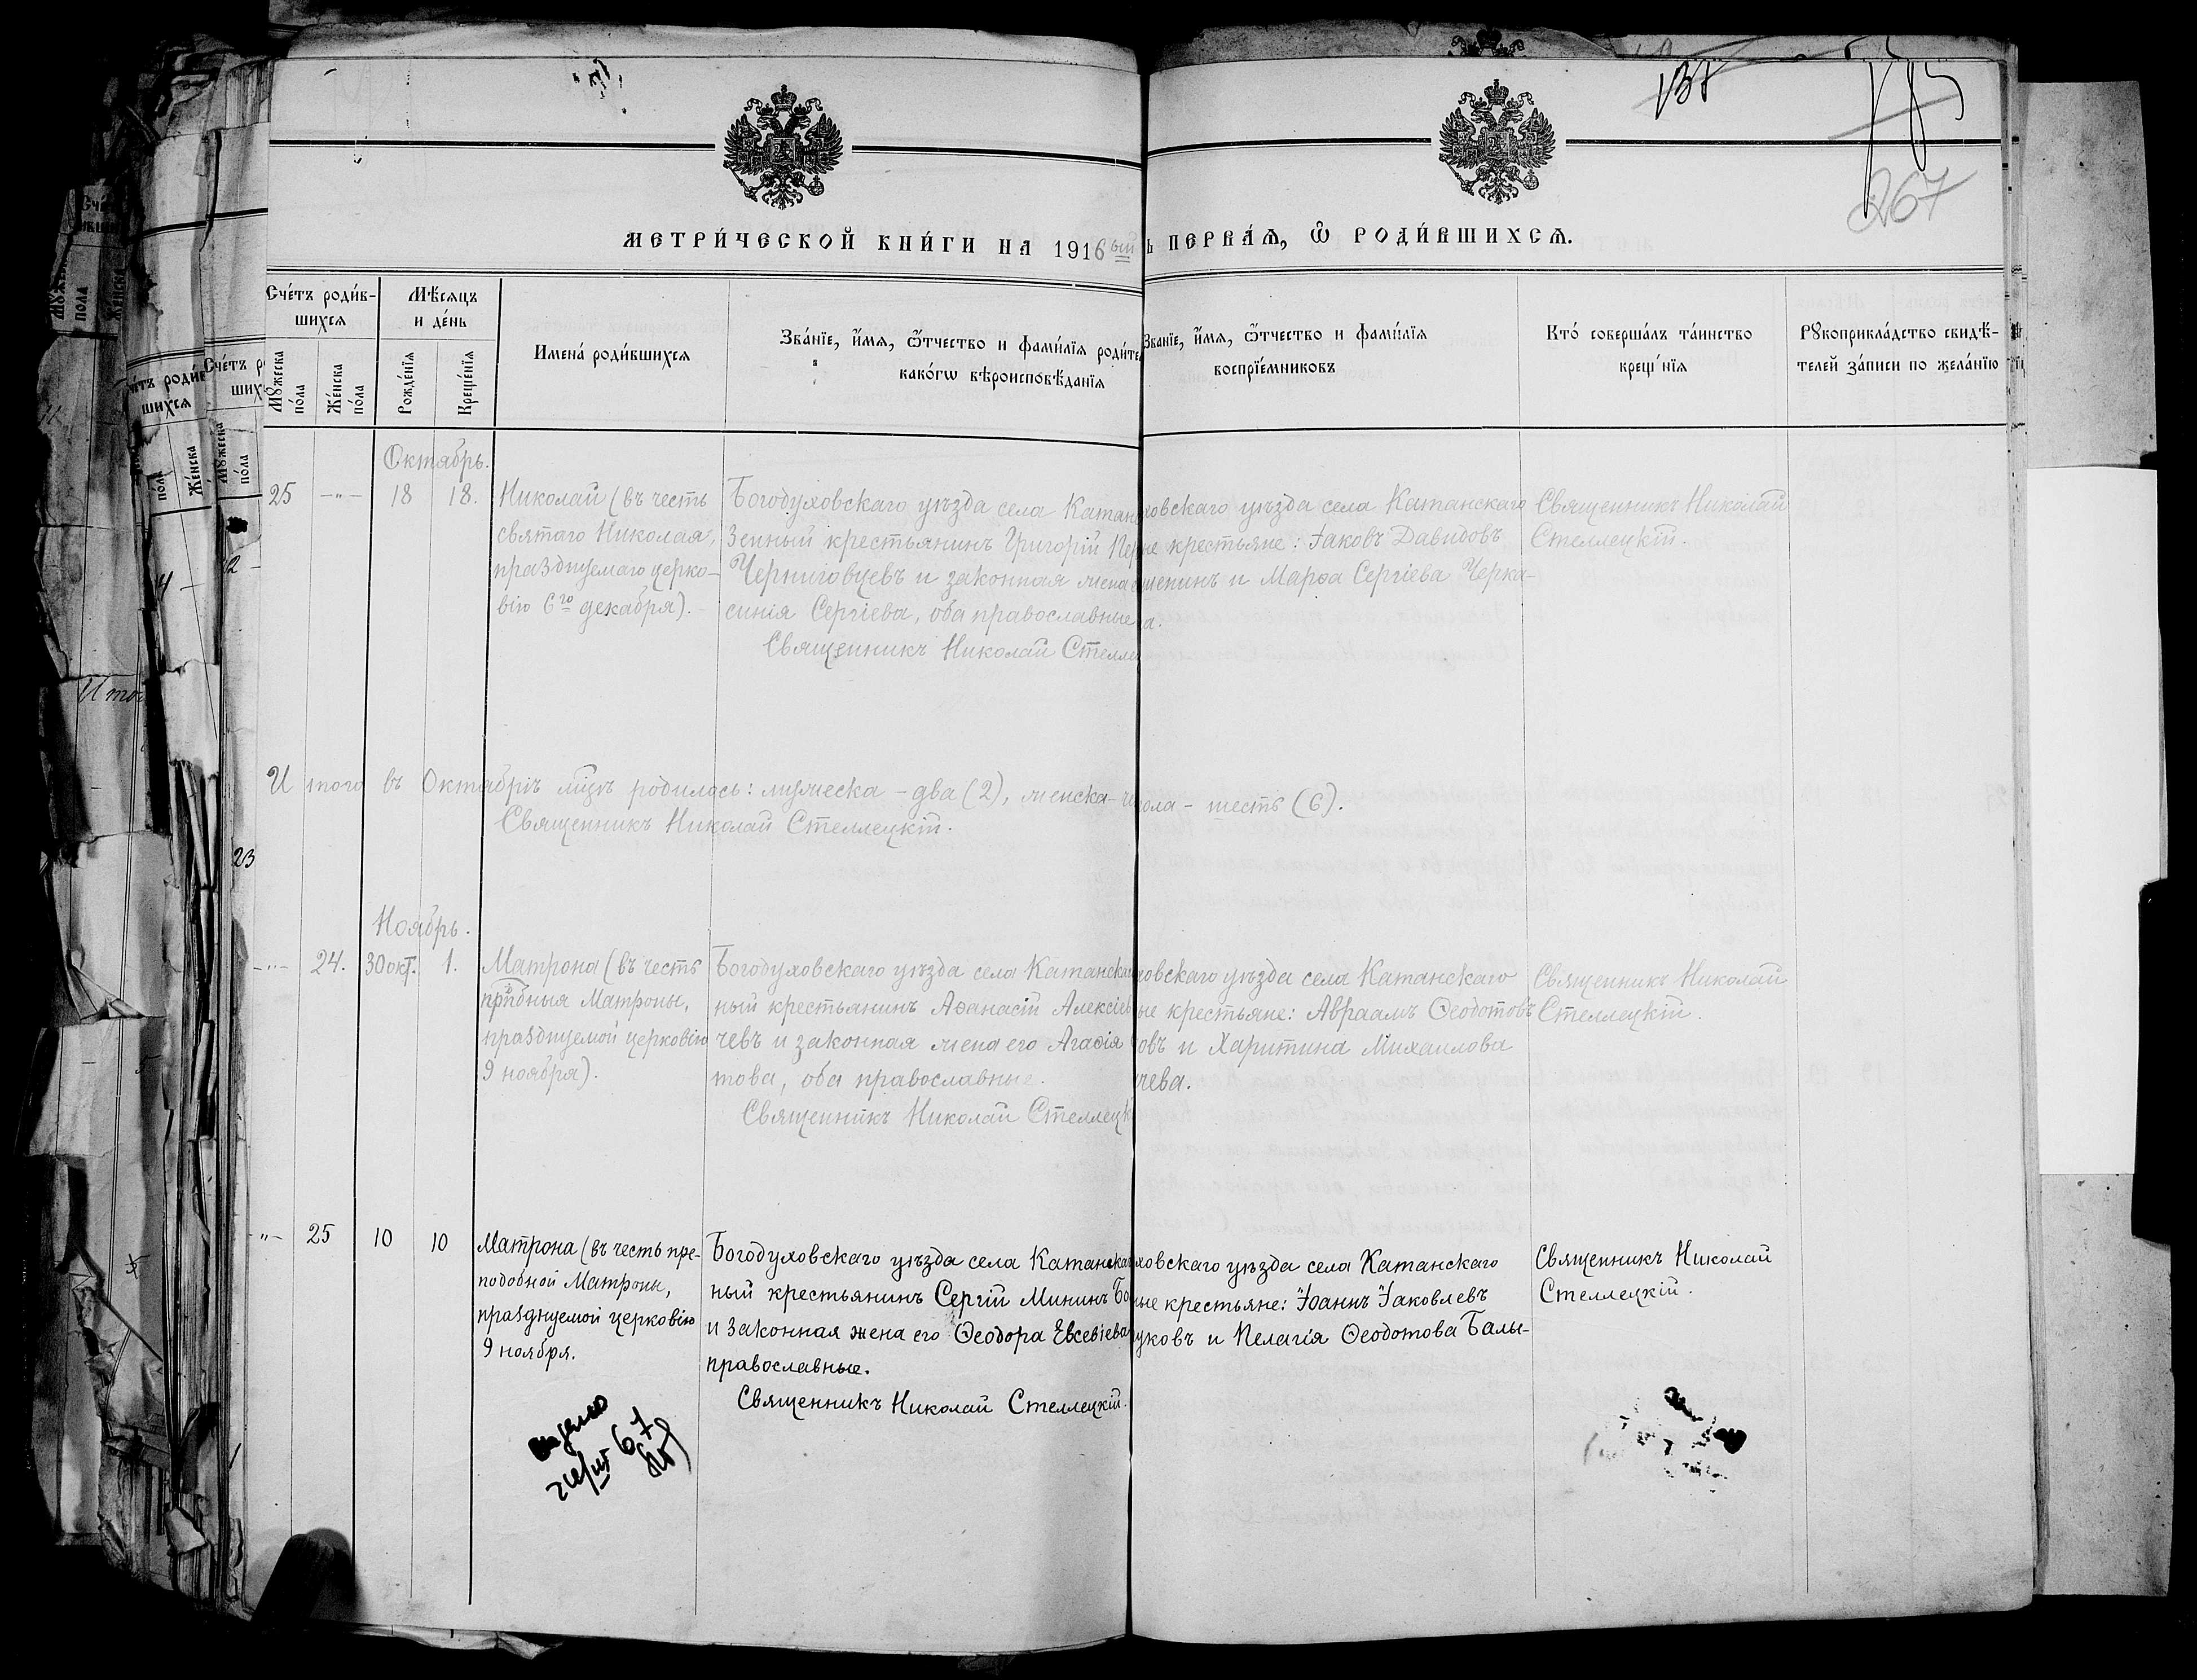 137
267
МЕТРИ́ЧЕСКОЙ КНИ́ГИ НА 1916ый
Ь ПЕРВА́Ѧ, Ѽ РОДИ́ВШИХСѦ.
Сче́тъ роди́в-
шихсѧ
Мꙋжеска
по́ла
Же́нска
по́ла
Мѣ́сяцъ
и де́нь
Рожде́нїѧ
Креще́нїѧ
Имена̀ роди́вшихсѧ
Зва́нїе, и҆́мѧ, ѻ҆́тчество и фами́лїѧ роди́те
како́гѡ вѣроисповѣ́данїѧ
Зва́нїе, и҆́мѧ, ѻ҆́тчество и фами́лїѧ
воспрїе́мниковъ
Кто́ соверша́лъ та́инство
креще́нїѧ
Рꙋкоприкла́дство свидѣ́-
телей за́писи по жела́нїю
Октябрь.
25 -"- 18 18.
Николай (въ честь
святаго Николая,
празднуемаго церко-
вію 6го декабря).
Богодуховскаго уѣзда села Катан
зенный крестьянинъ Григорій Пер
Черниговцевъ и законная жена
синія Сергіева, оба православные
Священникъ Николай Стеллец
ховскаго уѣзда села Катанскаго
не крестьяне: Іаковъ Давидовъ
шенинъ и Марѳа Сергіева Черка-
а.
Священникъ Николай
Стеллецкій.
Итого въ Октябрѣ мѣцѣ родилось: мужеска - два (2), женска-че
пола - шесть (6).
Священникъ Николай Стеллецкій.
23
Ноябрь.
-"- 24. 30 окт. 1.
Матрона (въ честь
прпбныя Матроны,
празднуемой церковію
9 ноября).
Богодуховскаго уѣзда села Катанска
ный крестьянинъ Аѳанасій Алексіев
чевъ и законная жена его Агаѳія
това, оба православные.
Священникъ Николай Стеллецк
ховскаго уѣзда села Катанскаго
ые крестьяне: Авраамъ Ѳеодотовъ
овъ и Харитина Михаилова
чева.
Священникъ Николай
Стеллецкій.
-"- 25 10 10
Матрона (въ честь пре-
подобной Матроны,
празднуемой церковію
9 ноября.
Богодуховскаго уѣзда села Катанска
ный крестьянинъ Сергій Мининъ Бо
и законная жена его Ѳеодора Евсевіева
православные.
Священникъ Николай Стеллецкій.
ховскаго уѣзда села Катанскаго
ные крестьяне: Іоаннъ Іаковлевъ
уковъ и Пелагія Ѳеодотова Балы-
Священникъ Николай
Стеллецкій.
67